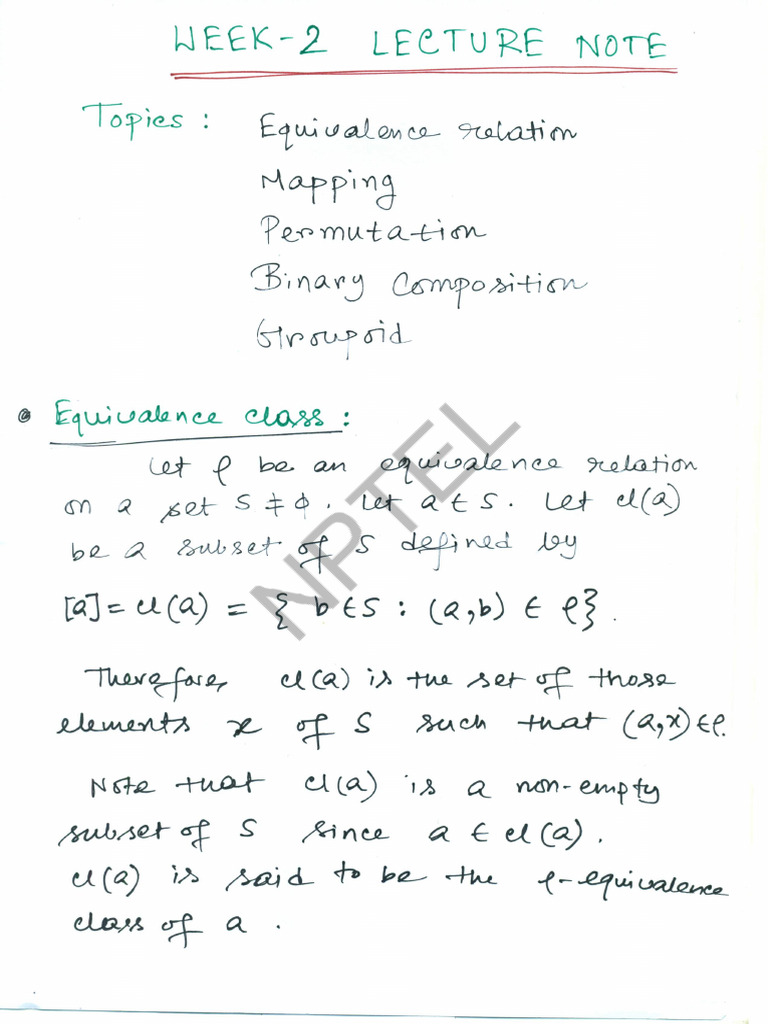 WEEK-2 LECTURE NOTE
Topics : Equivalence relation
Mapping
Permutation
Binary Composition
Groupoid
Equivalence class :
Let ρ be an equivalence relation
on a set S ≠ φ. Let a ∈ S. Let cl(a)
be a subset of S defined by
[a] = cl(a) = { b ∈ S : (a,b) ∈ ρ}.
Therefore, cl(a) is the set of those
elements x of S such that (a,x) ∈ ρ.
Note that cl(a) is a non-empty
subset of S since a ∈ cl(a).
cl(a) is said to be the ρ-equivalence
class of a .
NPTEL